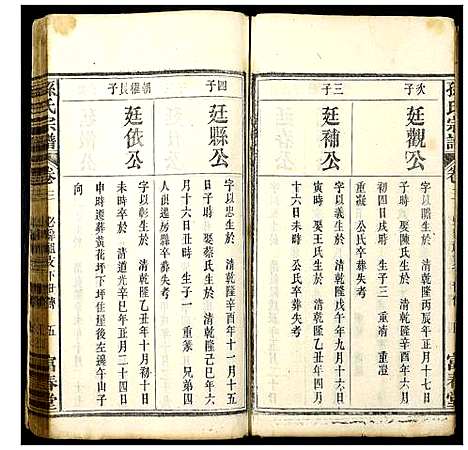 孫氏宗譜
卷三
次子
廷觀公
字以 生於 清乾隆丙辰年正月十七日
時 娶陳氏生於 清乾隆辛酉年六月
初四日戌時 生子二 重清 重澄
重凝 公氏卒葬失考
三子
廷補公
字以義生於 清乾隆戊午年九月十六日
寅時 娶王氏生於 清乾隆乙丑年四月
十六日未時 公氏卒葬失考
四子
廷縣公
字以忠生於 清乾隆辛酉年十一月十五
日子時 娶蔡氏生於 清乾隆己巳年六
月十六日丑時 生子一 重篆 兄弟四
人俱遷房縣卒葬失考
朝權長子
廷依公
字以彰生於 清乾隆乙丑年十月初十日
未時卒於 清道光辛巳年正月二十四日
申時遷葬黃花坪下坪住屋後左邊午山子
向
孫氏宗譜
卷三
五
富春堂